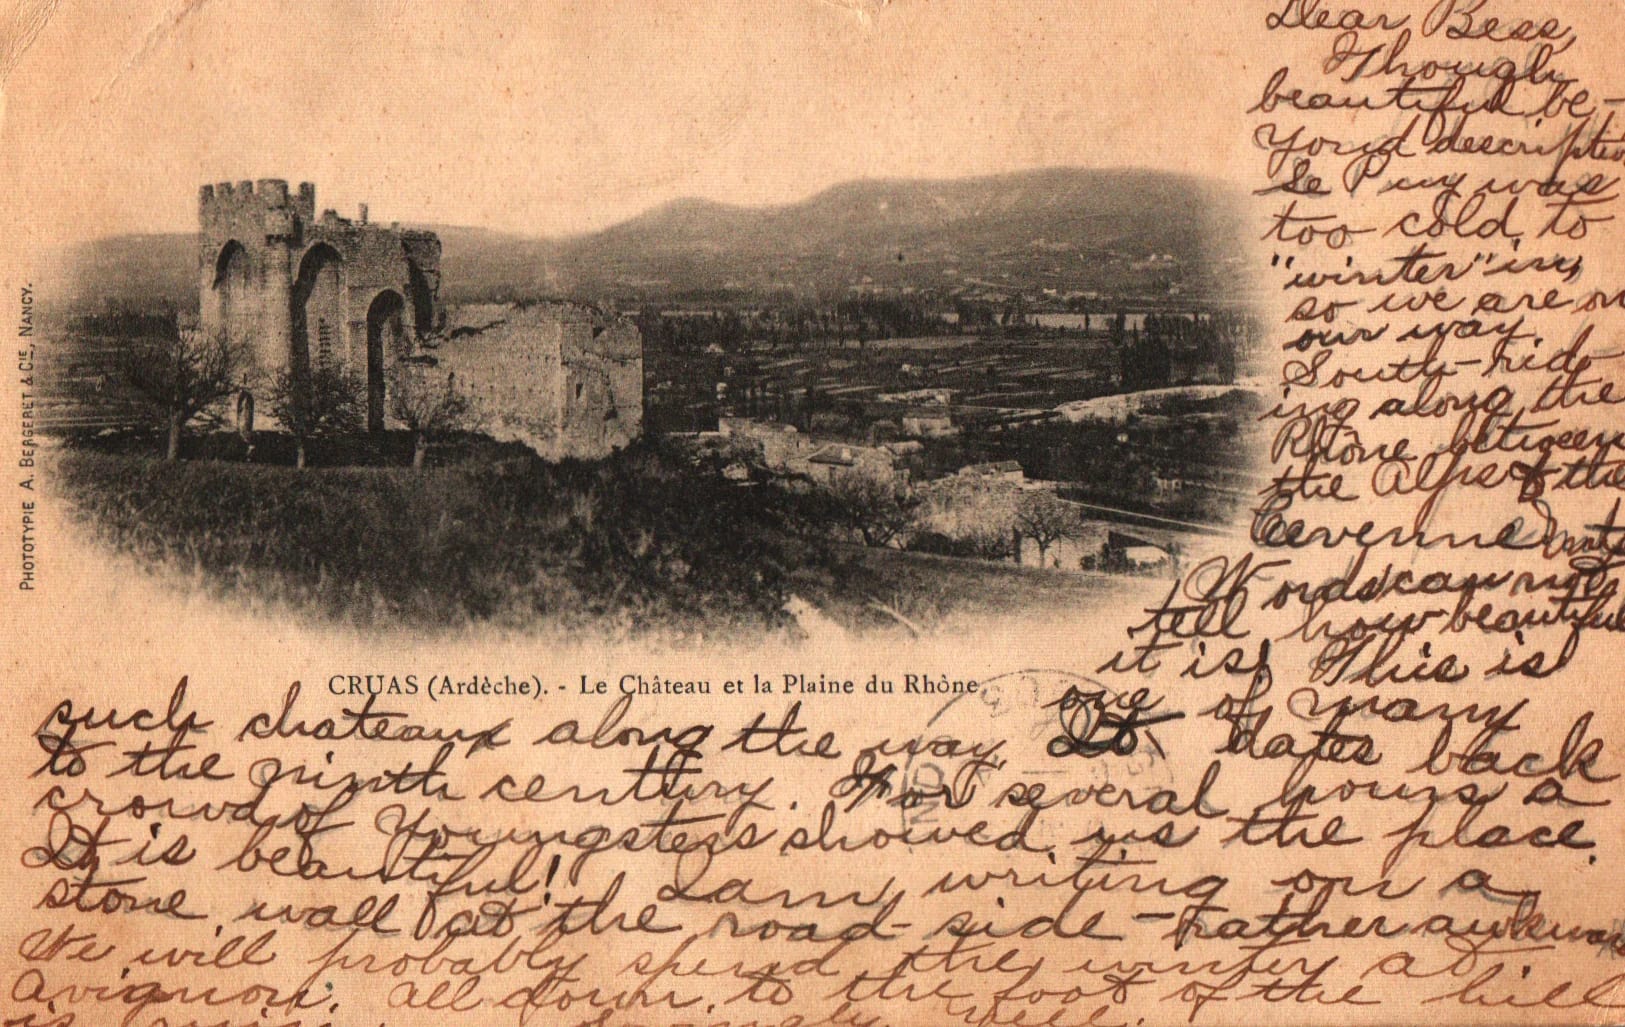 PHOTOTYPIE A. BERGERET & CIE, NANCY.
CRUAS (Ardèche). - Le Château et la Plaine du Rhône
Dear Bess,
Though
beautiful be-
yond description
Le Puy was
too cold to
"winter" in,
so we are on
our way
South-rid-
ing along the
Rhône between
the Alps & the
Cevenne mts
Words can not
tell how beautiful
it is! This is
one of many
such chateaux along the way. It dates back
to the ninth century. For several hours a
crowd of youngsters showed us the place.
It is beautiful! I am writing on a
stone wall at the road-side - rather awkward
We will probably spend the winter at
Avignon. All down to the foot of the hill
is well.